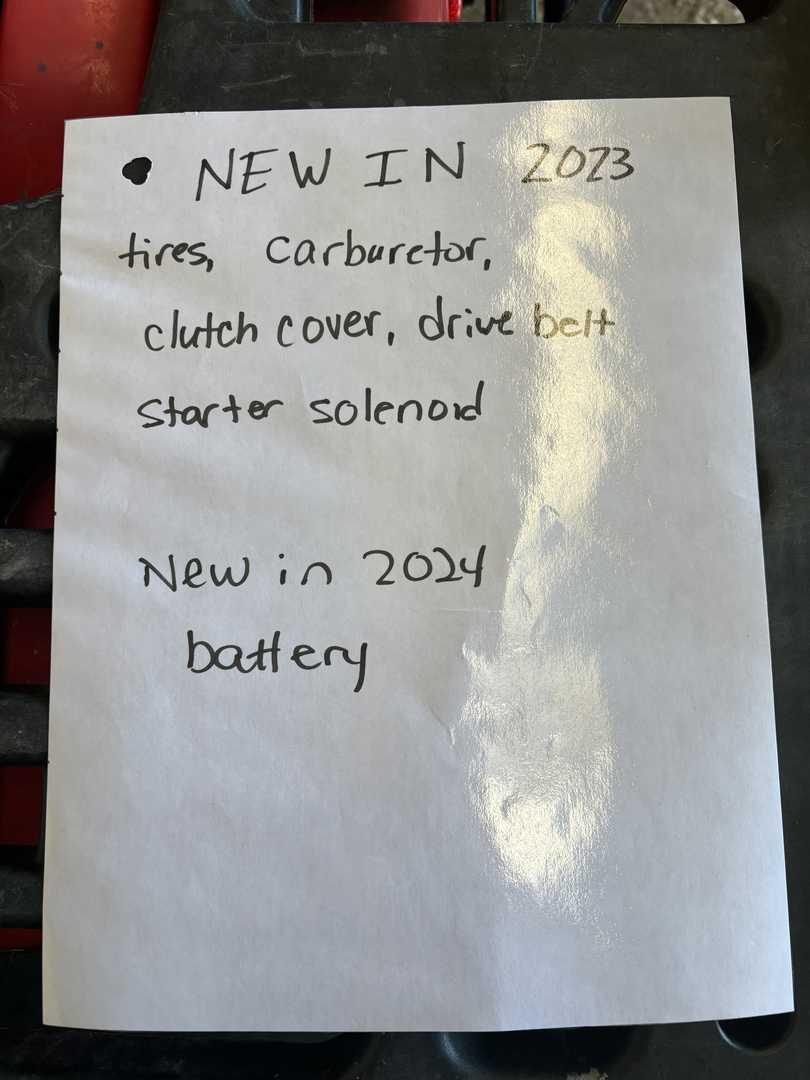 NEW IN 2023
tires, carburetor,
clutch cover, drive belt
starter solenoid
New in 2024
battery